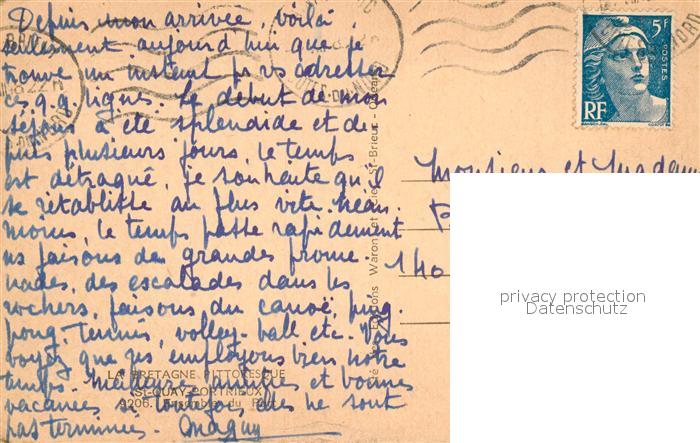 Depuis mon arrivée, voilà
seulement aujourd'hui que je
trouve un instant pr vs adresser
ces q.q. lignes. Le début de mon
séjour a été splendide et de
puis plusieurs jours, le temps
est détraqué, je souhaite qu'il
se rétablisse au plus vite. Néan
moins, le temps passe rapidement
ns faisons de grandes prome
nades, des escalades dans les
rochers, faisons du canoë, ping.
pong, tennis, volley-ball etc. Vous
voyez que ns employons bien notre
temps. Meilleures amitiés et bonnes
vacances si toutefois elles ne sont
pas terminées. Maguy
LA BRETAGNE PITTORESQUE
ST-QUAY-PORTRIEUX
9206. Ensemble du Port
Editions Waron et Cie, St-Brieuc
5F
POSTES
RF
Monsieur et Madame
140
privacy protection
Datenschutz